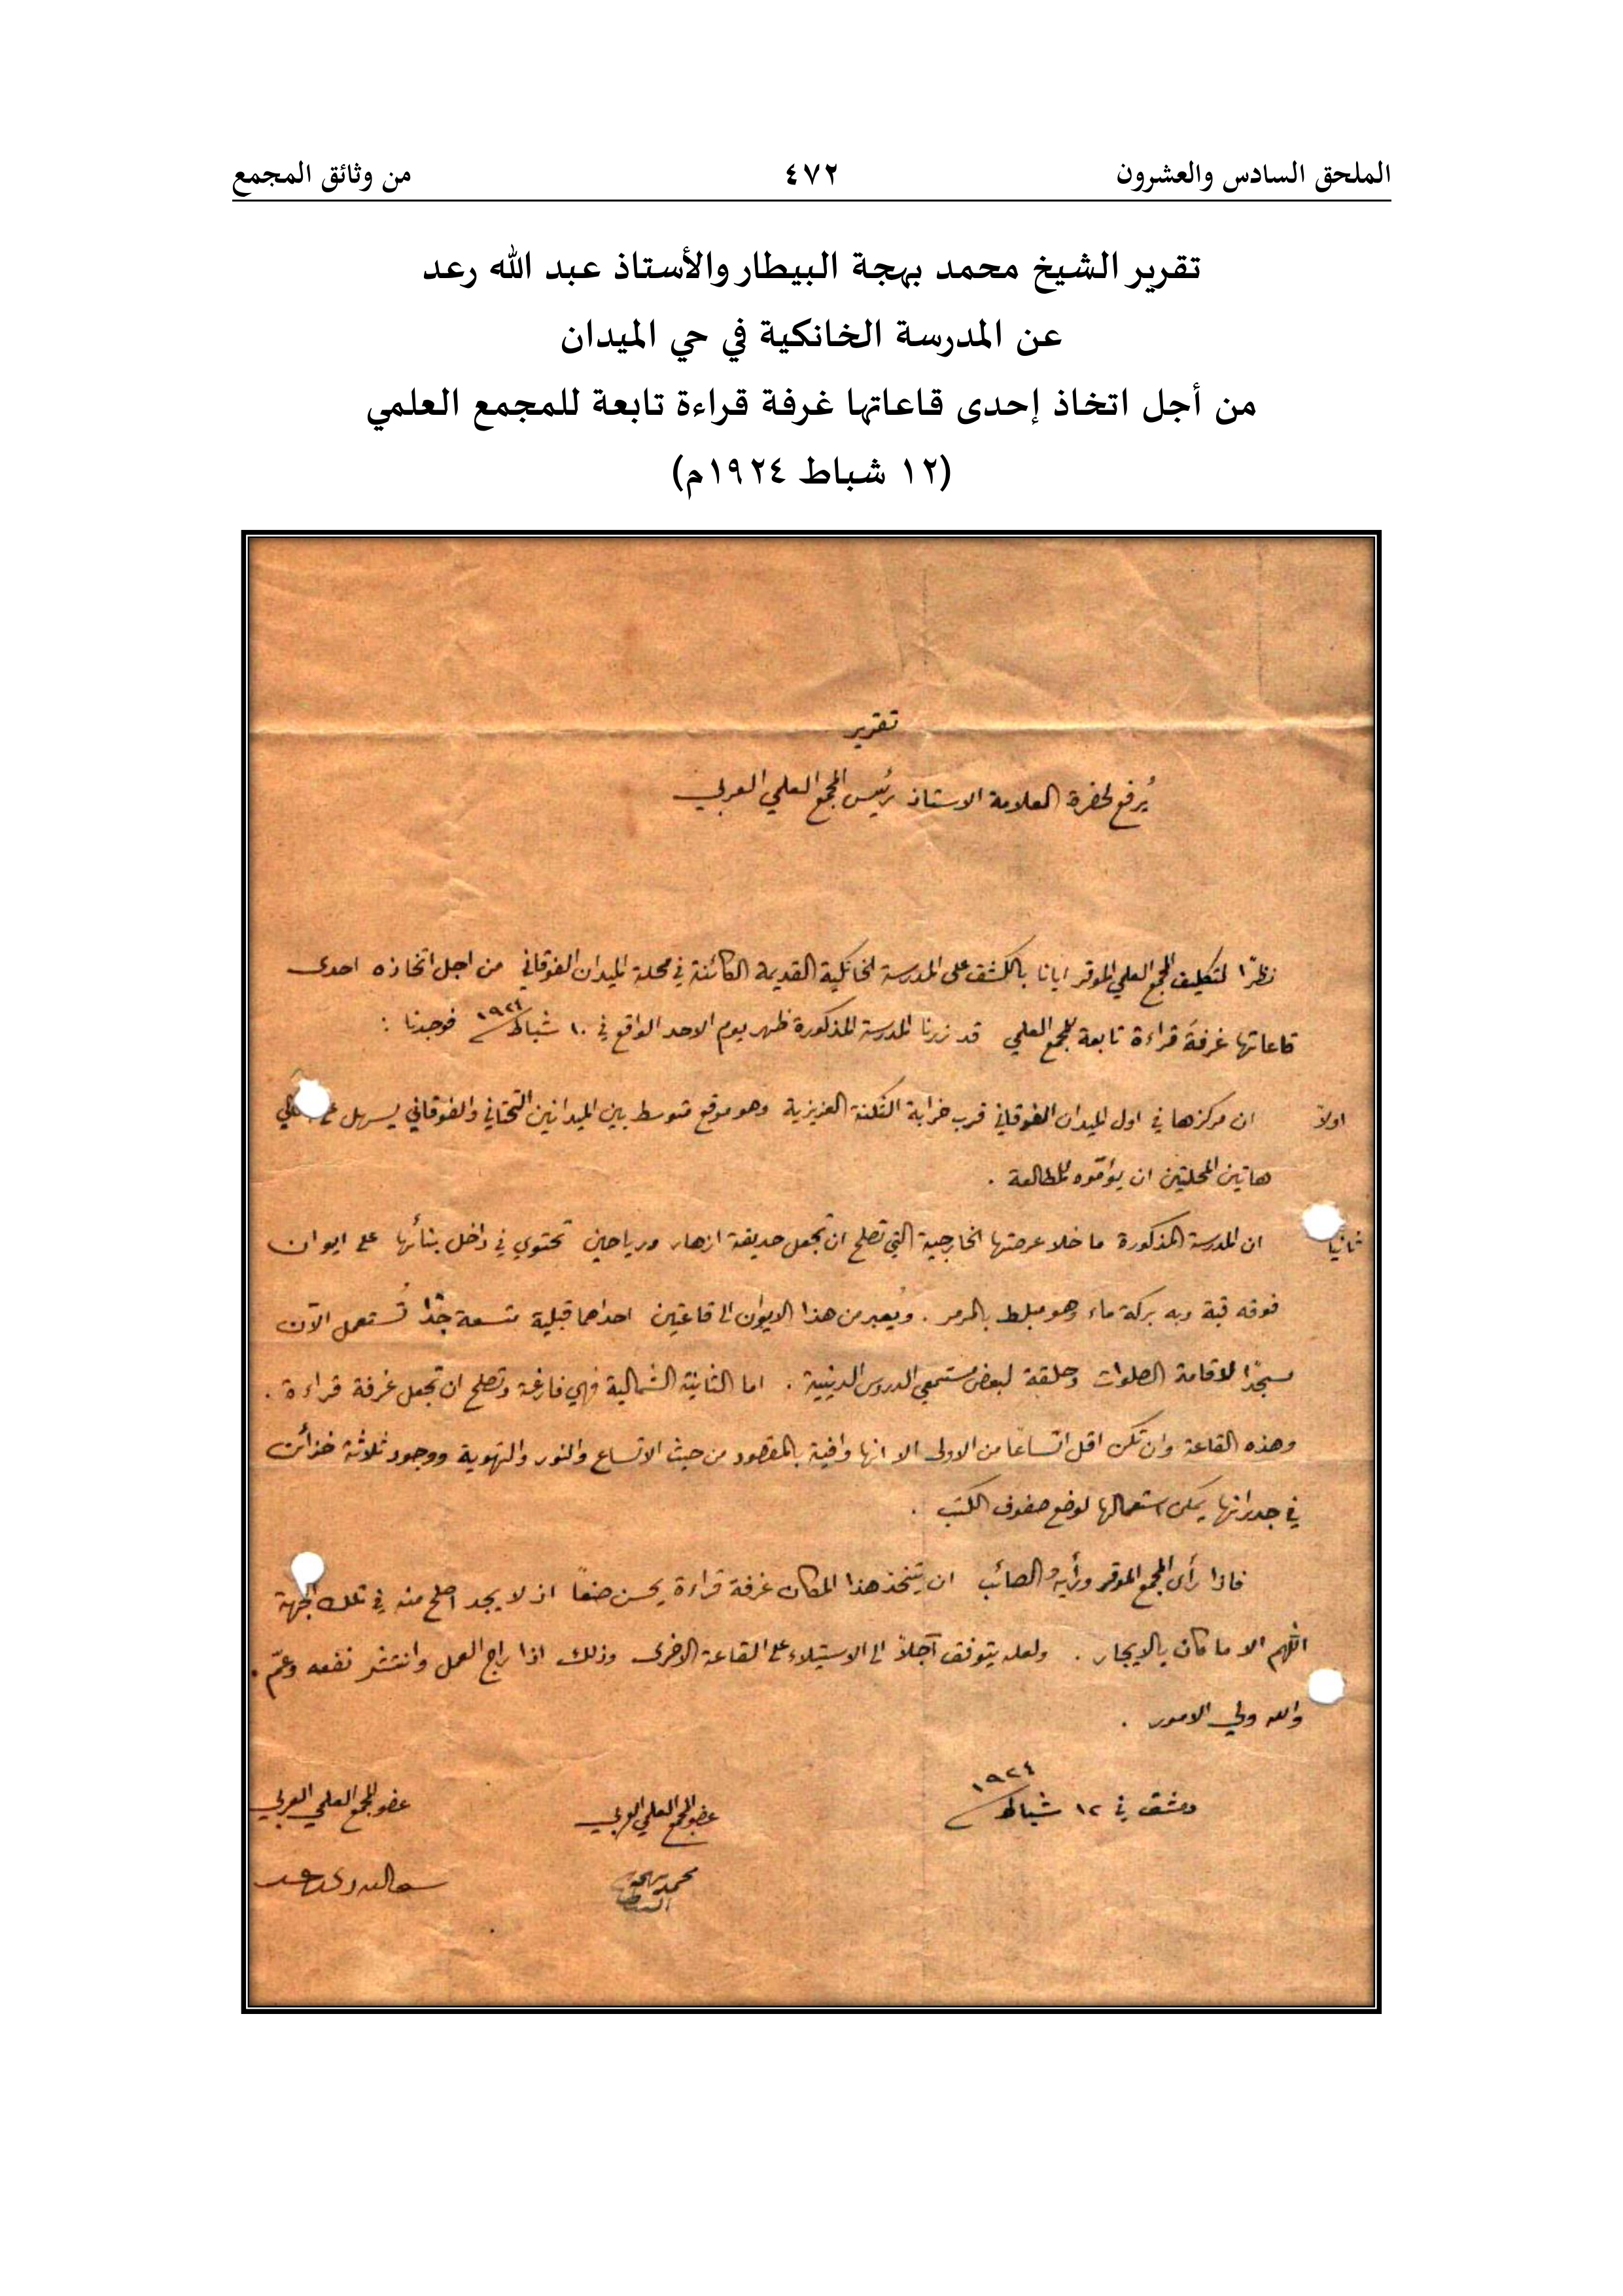 الملحق السادس والعشرون ٤٧٢ من وثائق المجمع
تقرير الشيخ محمد بهجة البيطار والأستاذ عبد الله رعد
عن المدرسة الخانكية في حي الميدان
من أجل اتخاذ إحدى قاعاتها غرفة قراءة تابعة للمجمع العلمي
(١٢ شباط ١٩٢٤م)
تقرير
يُرفع لحضرة العلامة الاستاذ رئيس المجمع العلمي العربي
نظرًا لتكليف المجمع العلمي الموقر ايانا بالكشف على المدرسة الخانكية القديمة الكائنة في محلة الميدان الفوقاني من اجل اتخاذه احدى
قاعاتها غرفةَ قراءة تابعة للمجمع العلمي قد زرنا المدرسة المذكورة ظهر يوم الاحد الواقع في ١٠ شباط ١٩٢٤ فوجدنا :
اولاً ان مركزها في اول الميدان الفوقاني قرب خرابة الثكنة العزيزية وهو موقع متوسط بين الميدانين التحتاني والفوقاني يسهل
هاتين المحلتين ان يؤمّوه للمطالعة .
ثانيا ان المدرسة المذكورة ما خلا عرصتها الخارجية التي تصلح ان تجعل حديقة ازهار ورياحين تحتوي في داخل بنائها على ايوان
فوقه قبة وبه بركة ماء وهو مبلط بالمرمر . ويُعبر من هذا الايوان الى قاعتين احداهما قبلية متسعة جدًّا تُستعمل الآن
مسجدًا لاقامة الصلوات وحلقة لبعض مستمعي الدروس الدينية . اما الثانية الشمالية فهي فارغة وتصلح ان تجعل غرفة قراءة .
وهذه القاعة وان تكن اقل اتساعًا من الاولى الا انها وافية بالمقصود من حيث الاتساع والنور والتهوية ووجود ثلاثة خزائن
في جدرانها يمكن استعمالها لوضع صفوف الكتب .
فاذا رأى المجمع الموقر ورأيه الصائب ان يتخذ هذا المكان غرفة قراءة يحسن صنعًا اذ لا يجد اصلح منه في تلك الجهة
اللهم الا ما كان بالايجار . ولعله يتوفق آجلاً الى الاستيلاء على القاعة الاخرى وذلك اذا راج العمل وانتشر نفعه وعمّ .
والله ولي الامور .
دمشق في ١٢ شباط ١٩٢٤
عضو المجمع العلمي العربي عضو المجمع العلمي العربي
محمد بهجة البيطار